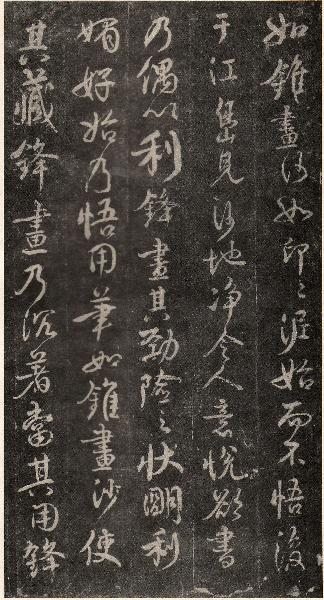 如錐畫沙如印印泥始而不悟後
于江島見沙地净令人意悅欲書
乃偶以利鋒畫其勁險之狀明利
媚好始乃悟用筆如錐畫沙使
其藏鋒畫乃沉着當其用鋒